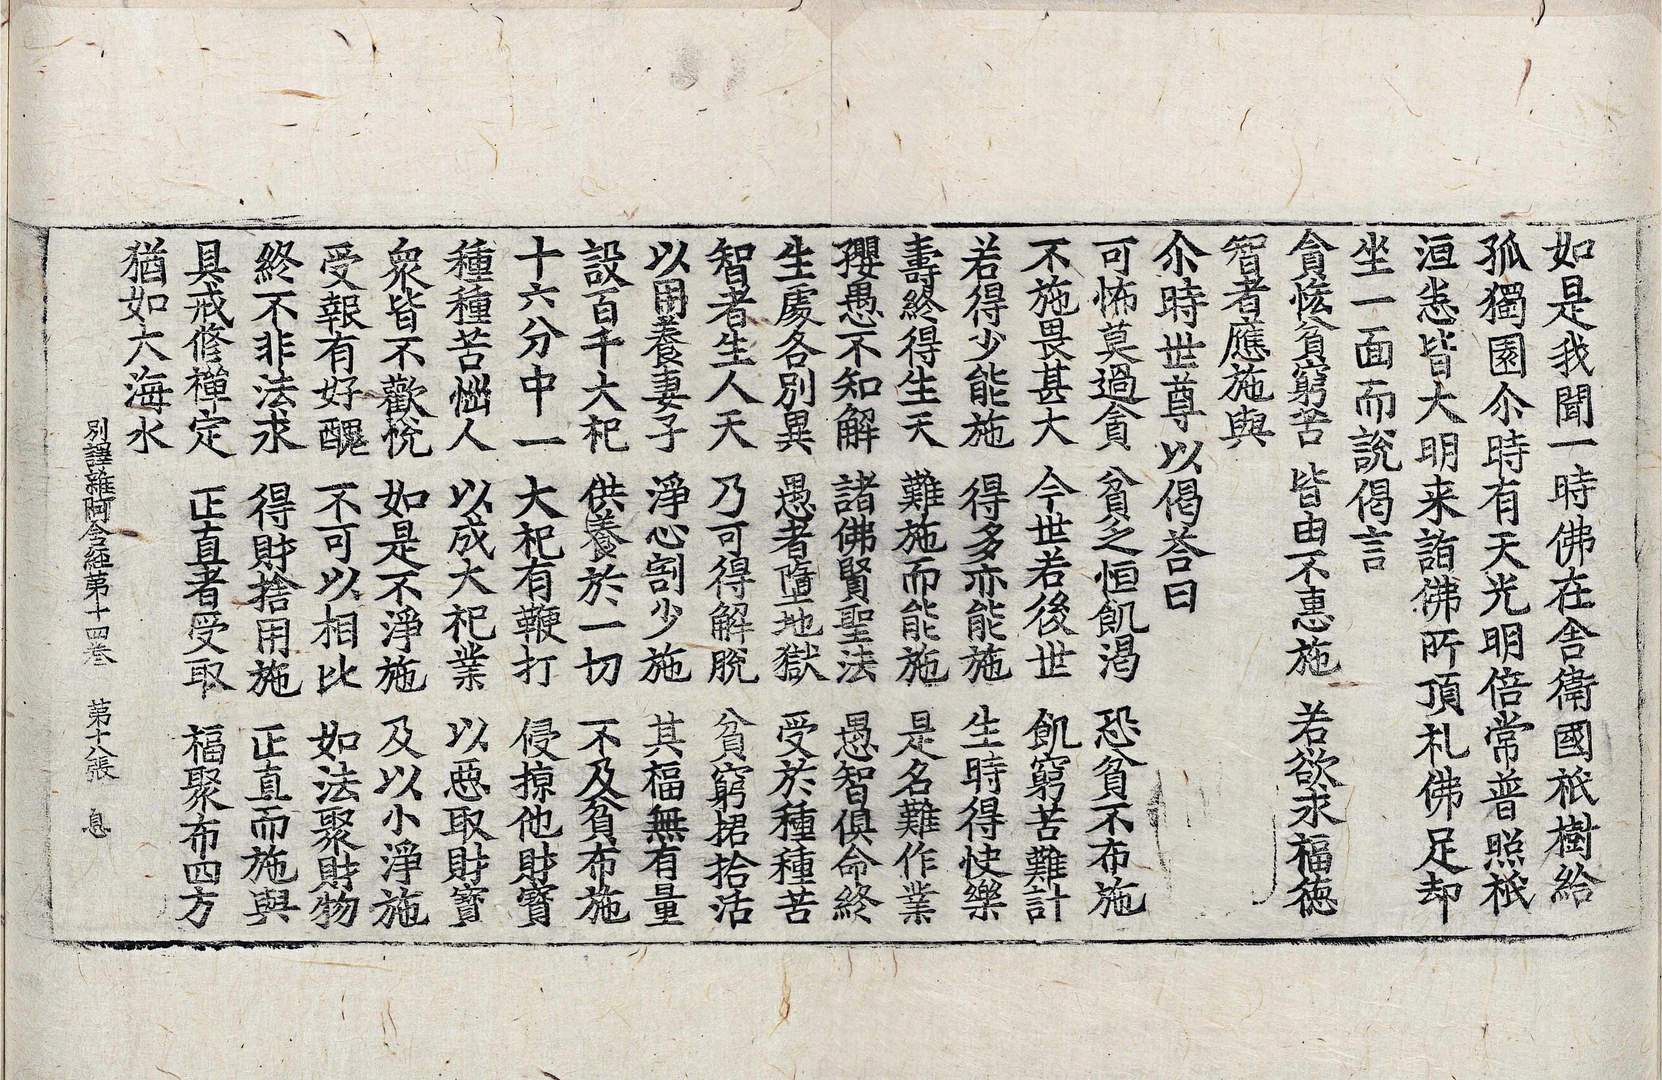 如是我聞一時佛在舍衞國祇樹給
孤獨園尒時有天光明倍常普照祇
洹悉皆大明来詣佛所頂礼佛足却
坐一面而說偈言
貪悋貧窮苦 皆由不惠施 若欲求福德
智者應施與
尒時世尊以偈荅曰
可怖莫過貪 貧乏恒飢渴 恐貧不布施
不施畏甚大 今世若後世 飢窮苦難計
若得少能施 得多亦能施 生時得快樂
壽終得生天 難施而能施 是名難作業
孾愚不知解 諸佛賢聖法 愚智俱命終
生處各別異 愚者墮地獄 受於種種苦
智者生人天 乃可得解脫 貧窮捃拾活
以用養妻子 淨心割少施 其福無有量
設百千大祀 供養於一切 不及貧布施
十六分中一 大祀有鞭打 侵掠他財寳
種種苦惱人 以成大祀業 以惡取財寳
衆皆不歡悅 如是不淨施 及以小淨施
受報有好醜 不可以相比 如法聚財物
終不非法求 得財捨用施 正直而施與
具戒修禪定 正直者受取 福聚布四方
猶如大海水
別譯雜阿含經第十四卷 第十八張 息